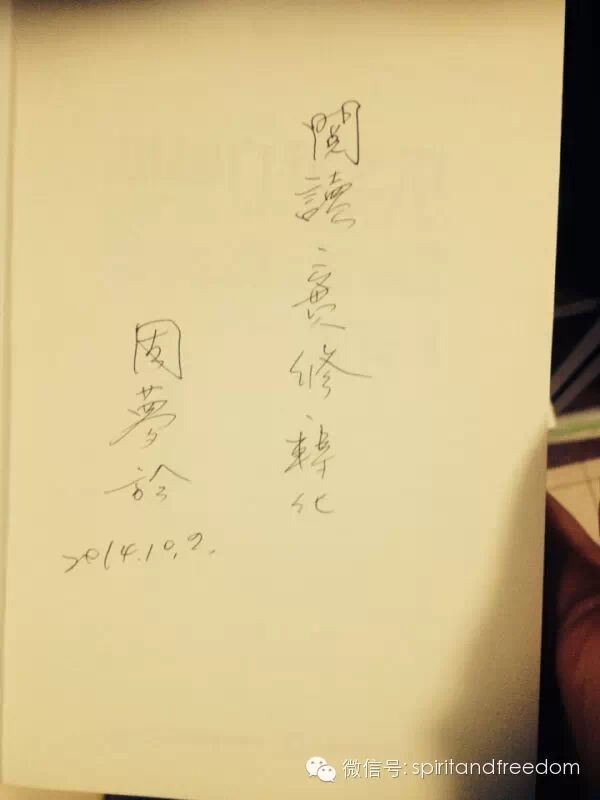 閱讀實修轉化
夢於
2014.10.2.
微信号: spiritandfreedom